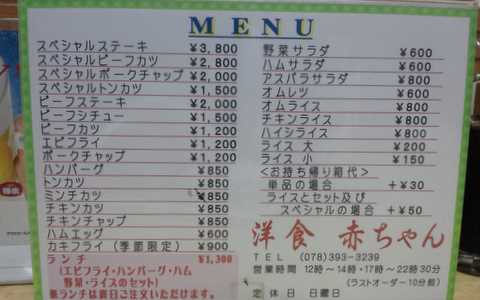 MENU
スペシャルステーキ ¥3,800
スペシャルビーフカツ ¥2,800
スペシャルポークチャップ ¥2,000
スペシャルトンカツ ¥1,500
ビーフステーキ ¥2,000
ビーフシチュー ¥1,500
ビーフカツ ¥1,200
エビフライ ¥1,200
ポークチャップ ¥1,200
ハンバーグ ¥850
トンカツ ¥850
ミンチカツ ¥850
チキンカツ ¥850
チキンチャップ ¥850
ハムエッグ ¥600
カキフライ(季節限定) ¥900
ランチ ¥1,300
(エビフライ・ハンバーグ・ハム
野菜・ライスのセット)
※ランチは終日ご注文いただけます。
野菜サラダ ¥600
ハムサラダ ¥600
アスパラサラダ ¥800
オムレツ ¥600
オムライス ¥800
チキンライス ¥800
ハイシライス ¥800
ライス 大 ¥200
ライス 小 ¥150
<お持ち帰り箱代>
単品の場合 +¥30
ライスとセット及び
スペシャルの場合 +¥50
洋食 赤ちゃん
TEL (078)393-3239
営業時間 12時~14時・17時~22時30分
(ラストオーダー10分前)
定休日 日曜日